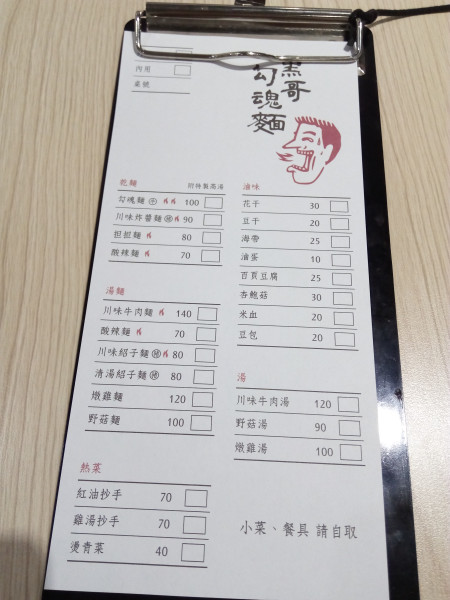 內用
桌號
黑哥
勾魂麵
乾麵 附特製高湯
勾魂麵 牛 100
川味炸醬麵 豬 90
担担麵 80
酸辣麵 70
湯麵
川味牛肉麵 140
酸辣麵 70
川味紹子麵 豬 80
清湯紹子麵 豬 80
燉雞麵 120
野菇麵 100
熱菜
紅油抄手 70
雞湯抄手 70
燙青菜 40
滷味
花干 30
豆干 20
海帶 25
滷蛋 10
百頁豆腐 25
杏鮑菇 30
米血 20
豆包 20
湯
川味牛肉湯 120
野菇湯 90
燉雞湯 100
小菜、餐具 請自取